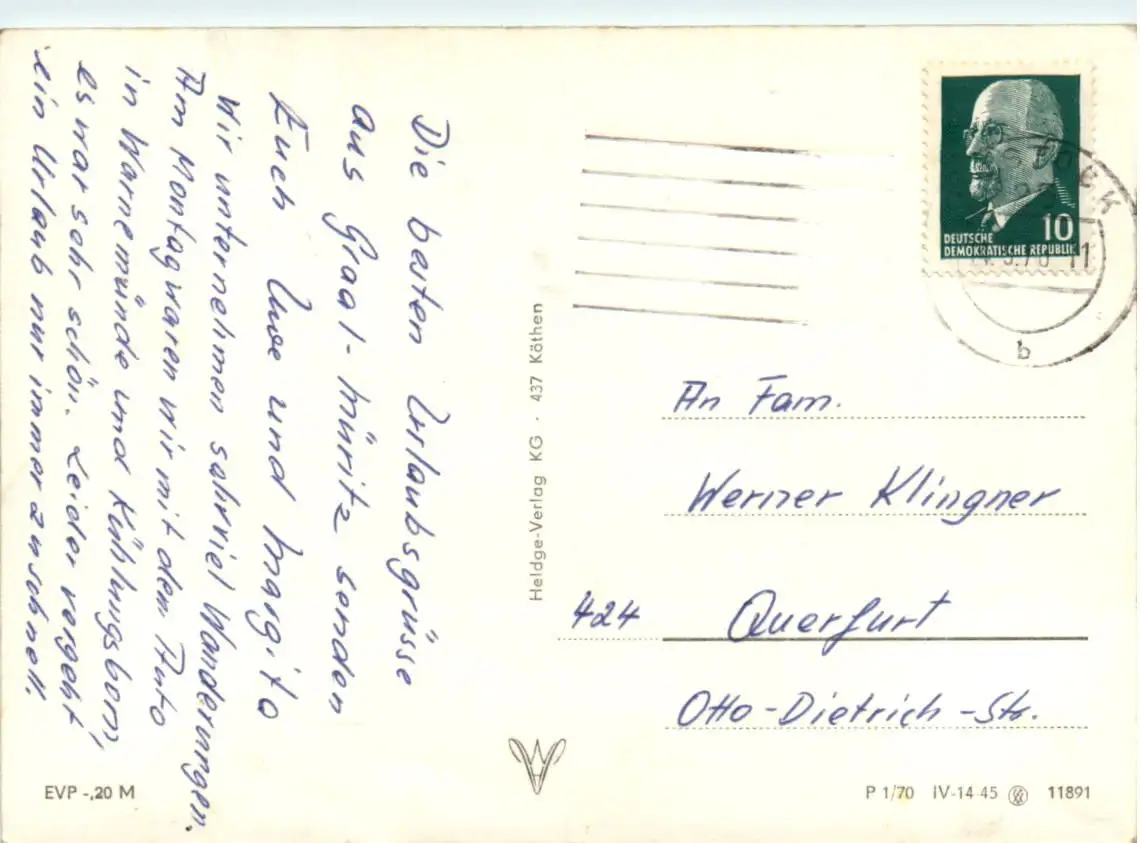 Die besten Urlaubsgrüsse
aus Graal-Müritz senden
Euch Uwe und Margita
Wir unternehmen sehrviel Wanderungen.
Am Montag waren wir mit dem Auto
in Warnemünde und Kühlungsborn,
es war sehr schön. Leider vergeht
ein Urlaub nur immer zu schnell.
EVP -,20 M
Heldge-Verlag KG · 437 Köthen
10
DEUTSCHE
DEMOKRATISCHE REPUBLIK
b
An Fam.
Werner Klingner
424 Querfurt
Otto-Dietrich-Str.
P 1/70 IV-14-45 11891